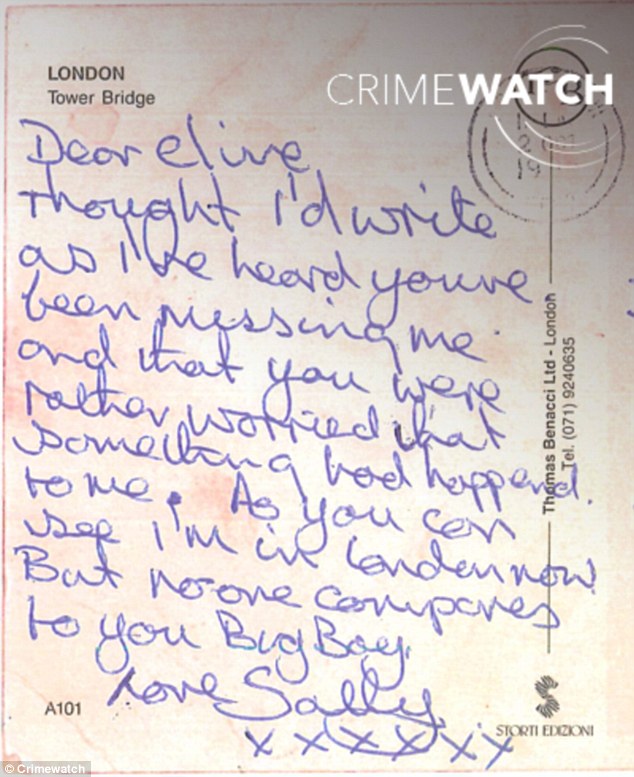 LONDON
Tower Bridge
CRIMEWATCH
Dear Clive
Thought I'd write
as I've heard youve
been missing me
and that you were
rather worried that
something had happend
to me. As you can
see I'm in London now
But no-one compares
to you Big Boy
Love Sally
x x x x x x x
Thomas Benacci Ltd - London
Tel. (071) 9240635
A101
STORTI EDIZIONI
© Crimewatch